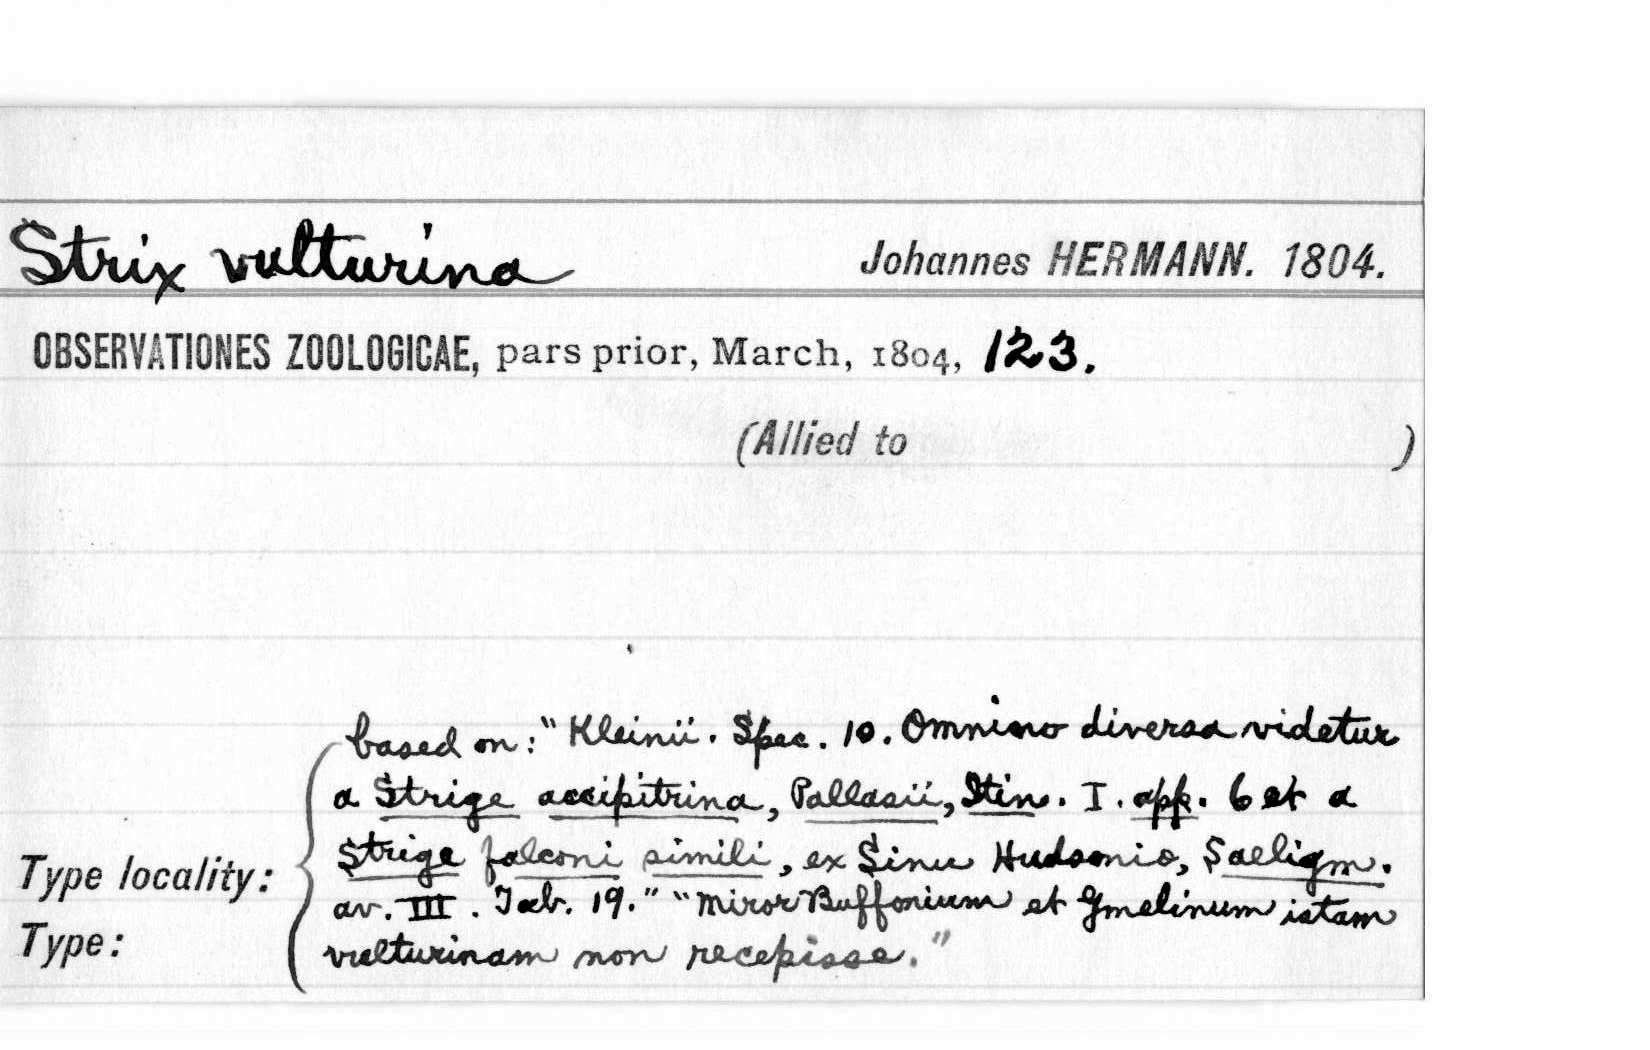 Strix vulturina
Johannes HERMANN. 1804.
OBSERVATIONES ZOOLOGICAE, pars prior, March, 1804, 123.
(Allied to )
based on: "Kleinii. Spec. 10. Omnino diversa videtur
a Strige accipitrina, Pallasii, Itin. I. app. 6 et a
Strige falconi simili, ex Sinu Hudsonio, Saeligm.
av. III. Tab. 19." "Miror Buffonium et Gmelinum istam
vulturinam non recepisse."
Type locality:
Type: